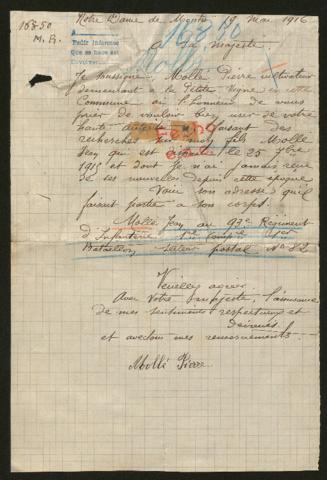 1650
M. R.
Notre Dame de 19 Mai 1916
16850
A
Molle
A Sa Majesté.
Je soussigné, Mollé Pierre cultivateur
demeurant à la Petite Vigne en cette
Commune ai l'honneur de vous
prier de vouloir bien user de votre
haute faisant des
recherches sur mon fils Mollé
Jean qui est disparu le 25 7bre
1915 et dont Je n'ai jamais reçu
de ses nouvelles depuis cette époque
Voici son adresse qu'il
faisait partie à son corps.
Mollé Jean au 97e Régiment
d'Infanterie 1re Compie 1er
Bataillon Secteur postal No 82
Veuillez agréer
Avec Votre Majesté, l'assurance
de mes sentiments respectueux et
dévoués.
et avec tous mes remerciements.
Mollé Pierre